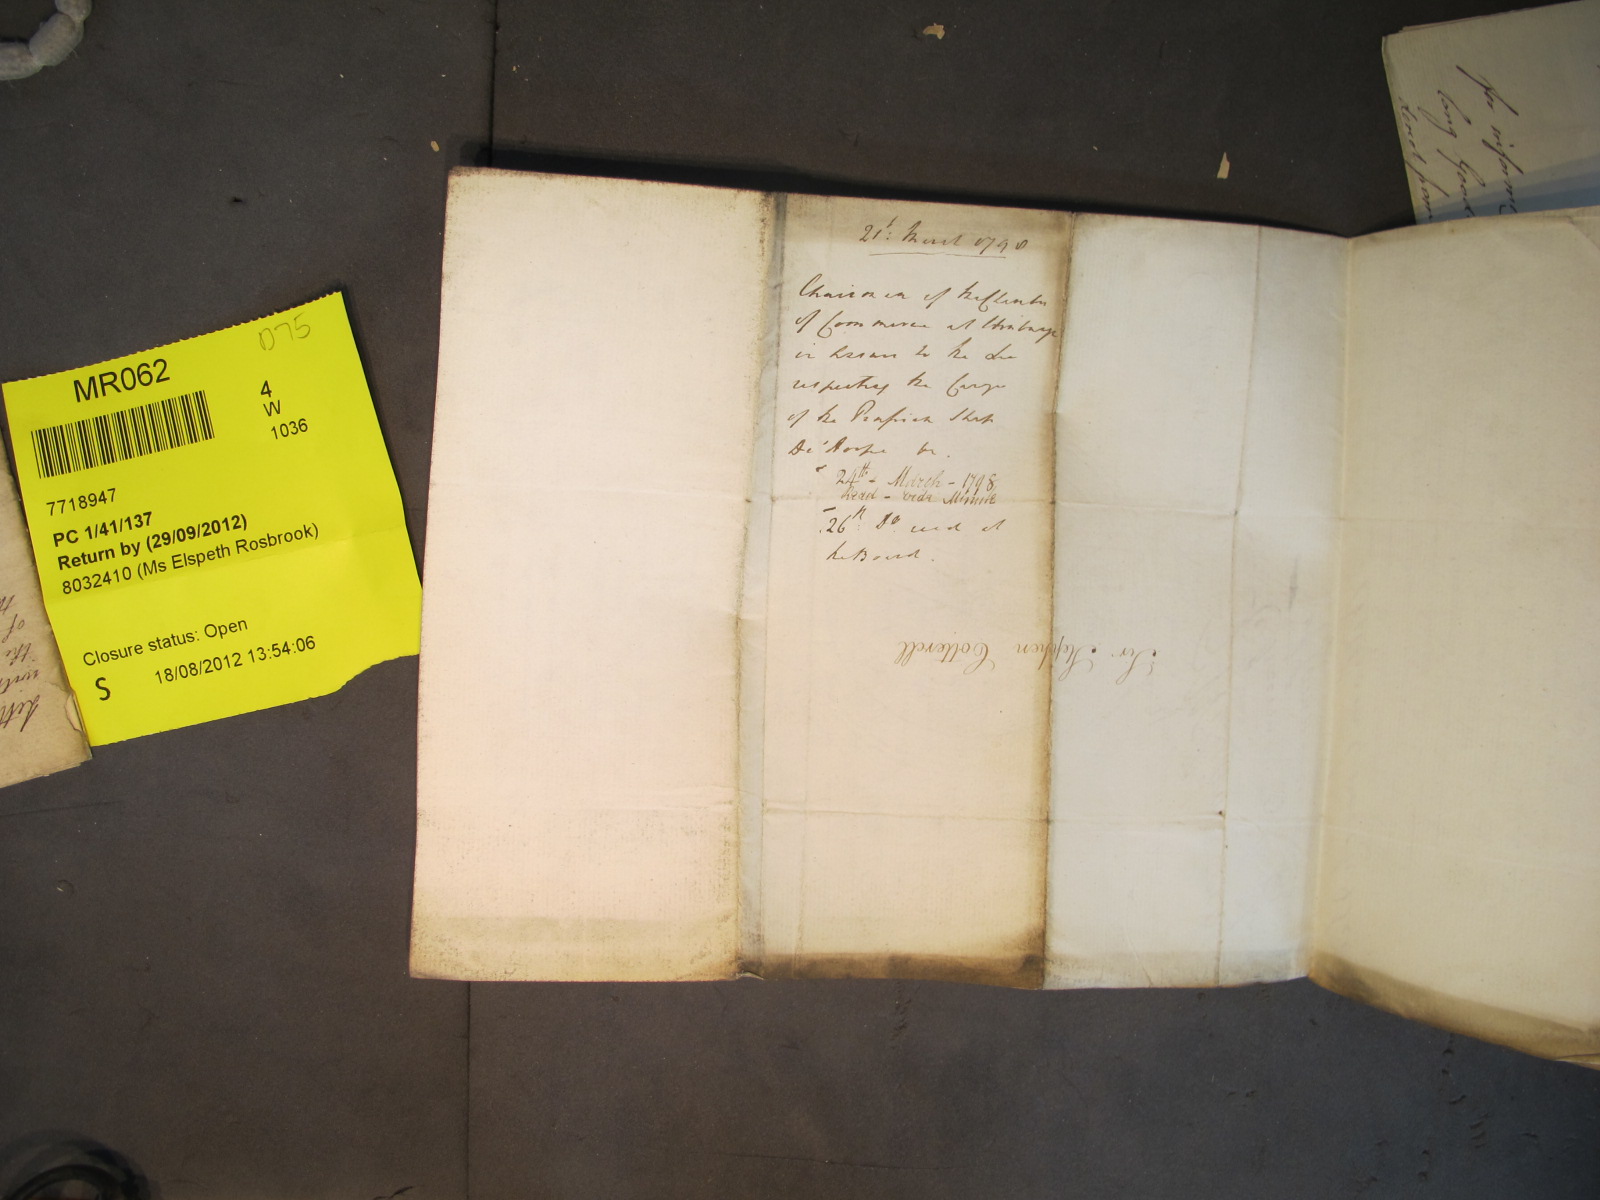 MR062
D75
4
W
1036
7718947
PC 1/41/137
Return by (29/09/2012)
8032410 (Ms Elspeth Rosbrook)
Closure status: Open
S 18/08/2012 13:54:06
21st: March 1798
Chairman of the Chamber
of Commerce at Edinburgh
in answer to the
respecting the Cargo
of the Prussian Ship
De
24th - March - 1798
Read - vide Minute
26th: Do read at
the Board.
Sir Stephen Cotterell
for
long